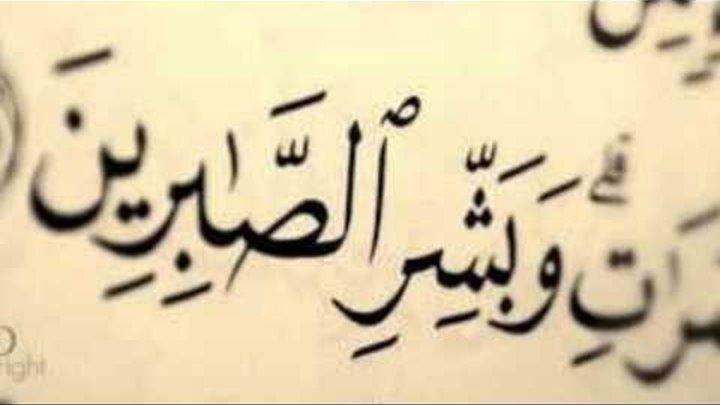 مَرَٰتِ ۗ وَبَشِّرِ ٱلصَّـٰبِرِينَ
right